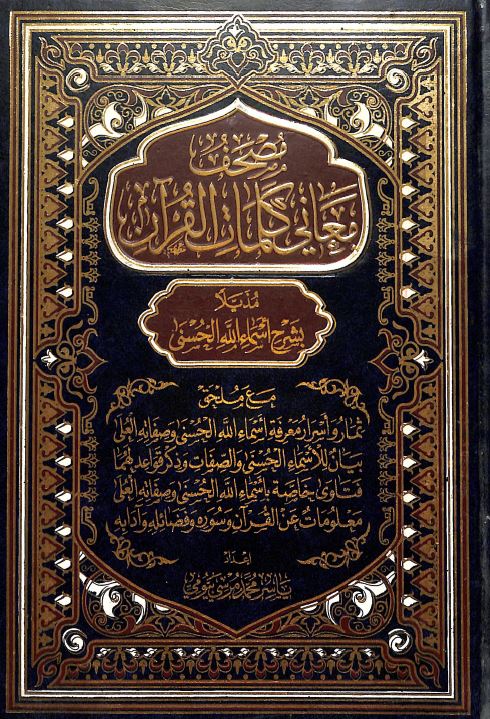 مُصْحَفُ
مَعَانِي كَلِمَاتِ القُرْآنِ
مُذَيَّلًا
بِشَرْحِ أَسْمَاءِ اللَّهِ الحُسْنَى
مَعَ مُلْحَقِ
ثمار وأسرار معرفة أسماء الله الحسنى وصفاته العلى
بيان للأسماء الحسنى والصفات وذكر قواعد لهما
فتاوى خاصة بأسماء الله الحسنى وصفاته العلى
معلومات عن القرآن وسوره وفضائله وآدابه
إعداد
ياسر محمد مرسي بيومي